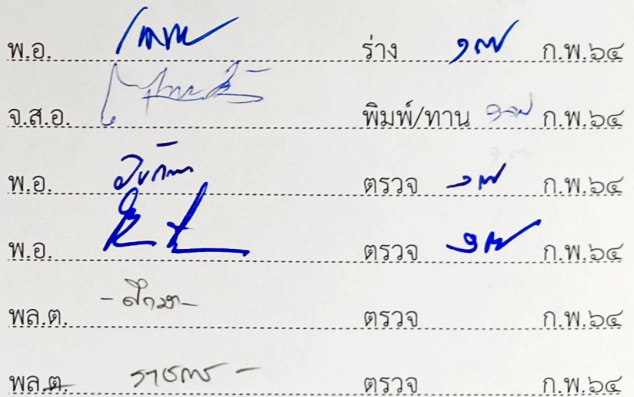 พ.อ. ร่าง ๑๗ ก.พ.๖๔
จ.ส.อ. พิมพ์/ทาน ๑๗ ก.พ.๖๔
พ.อ. ตรวจ ๑๗ ก.พ.๖๔
พ.อ. ตรวจ ๑๗ ก.พ.๖๔
พล.ต. - ศึกษา - ตรวจ ก.พ.๖๔
พล.ต. ราชการ - ตรวจ ก.พ.๖๔